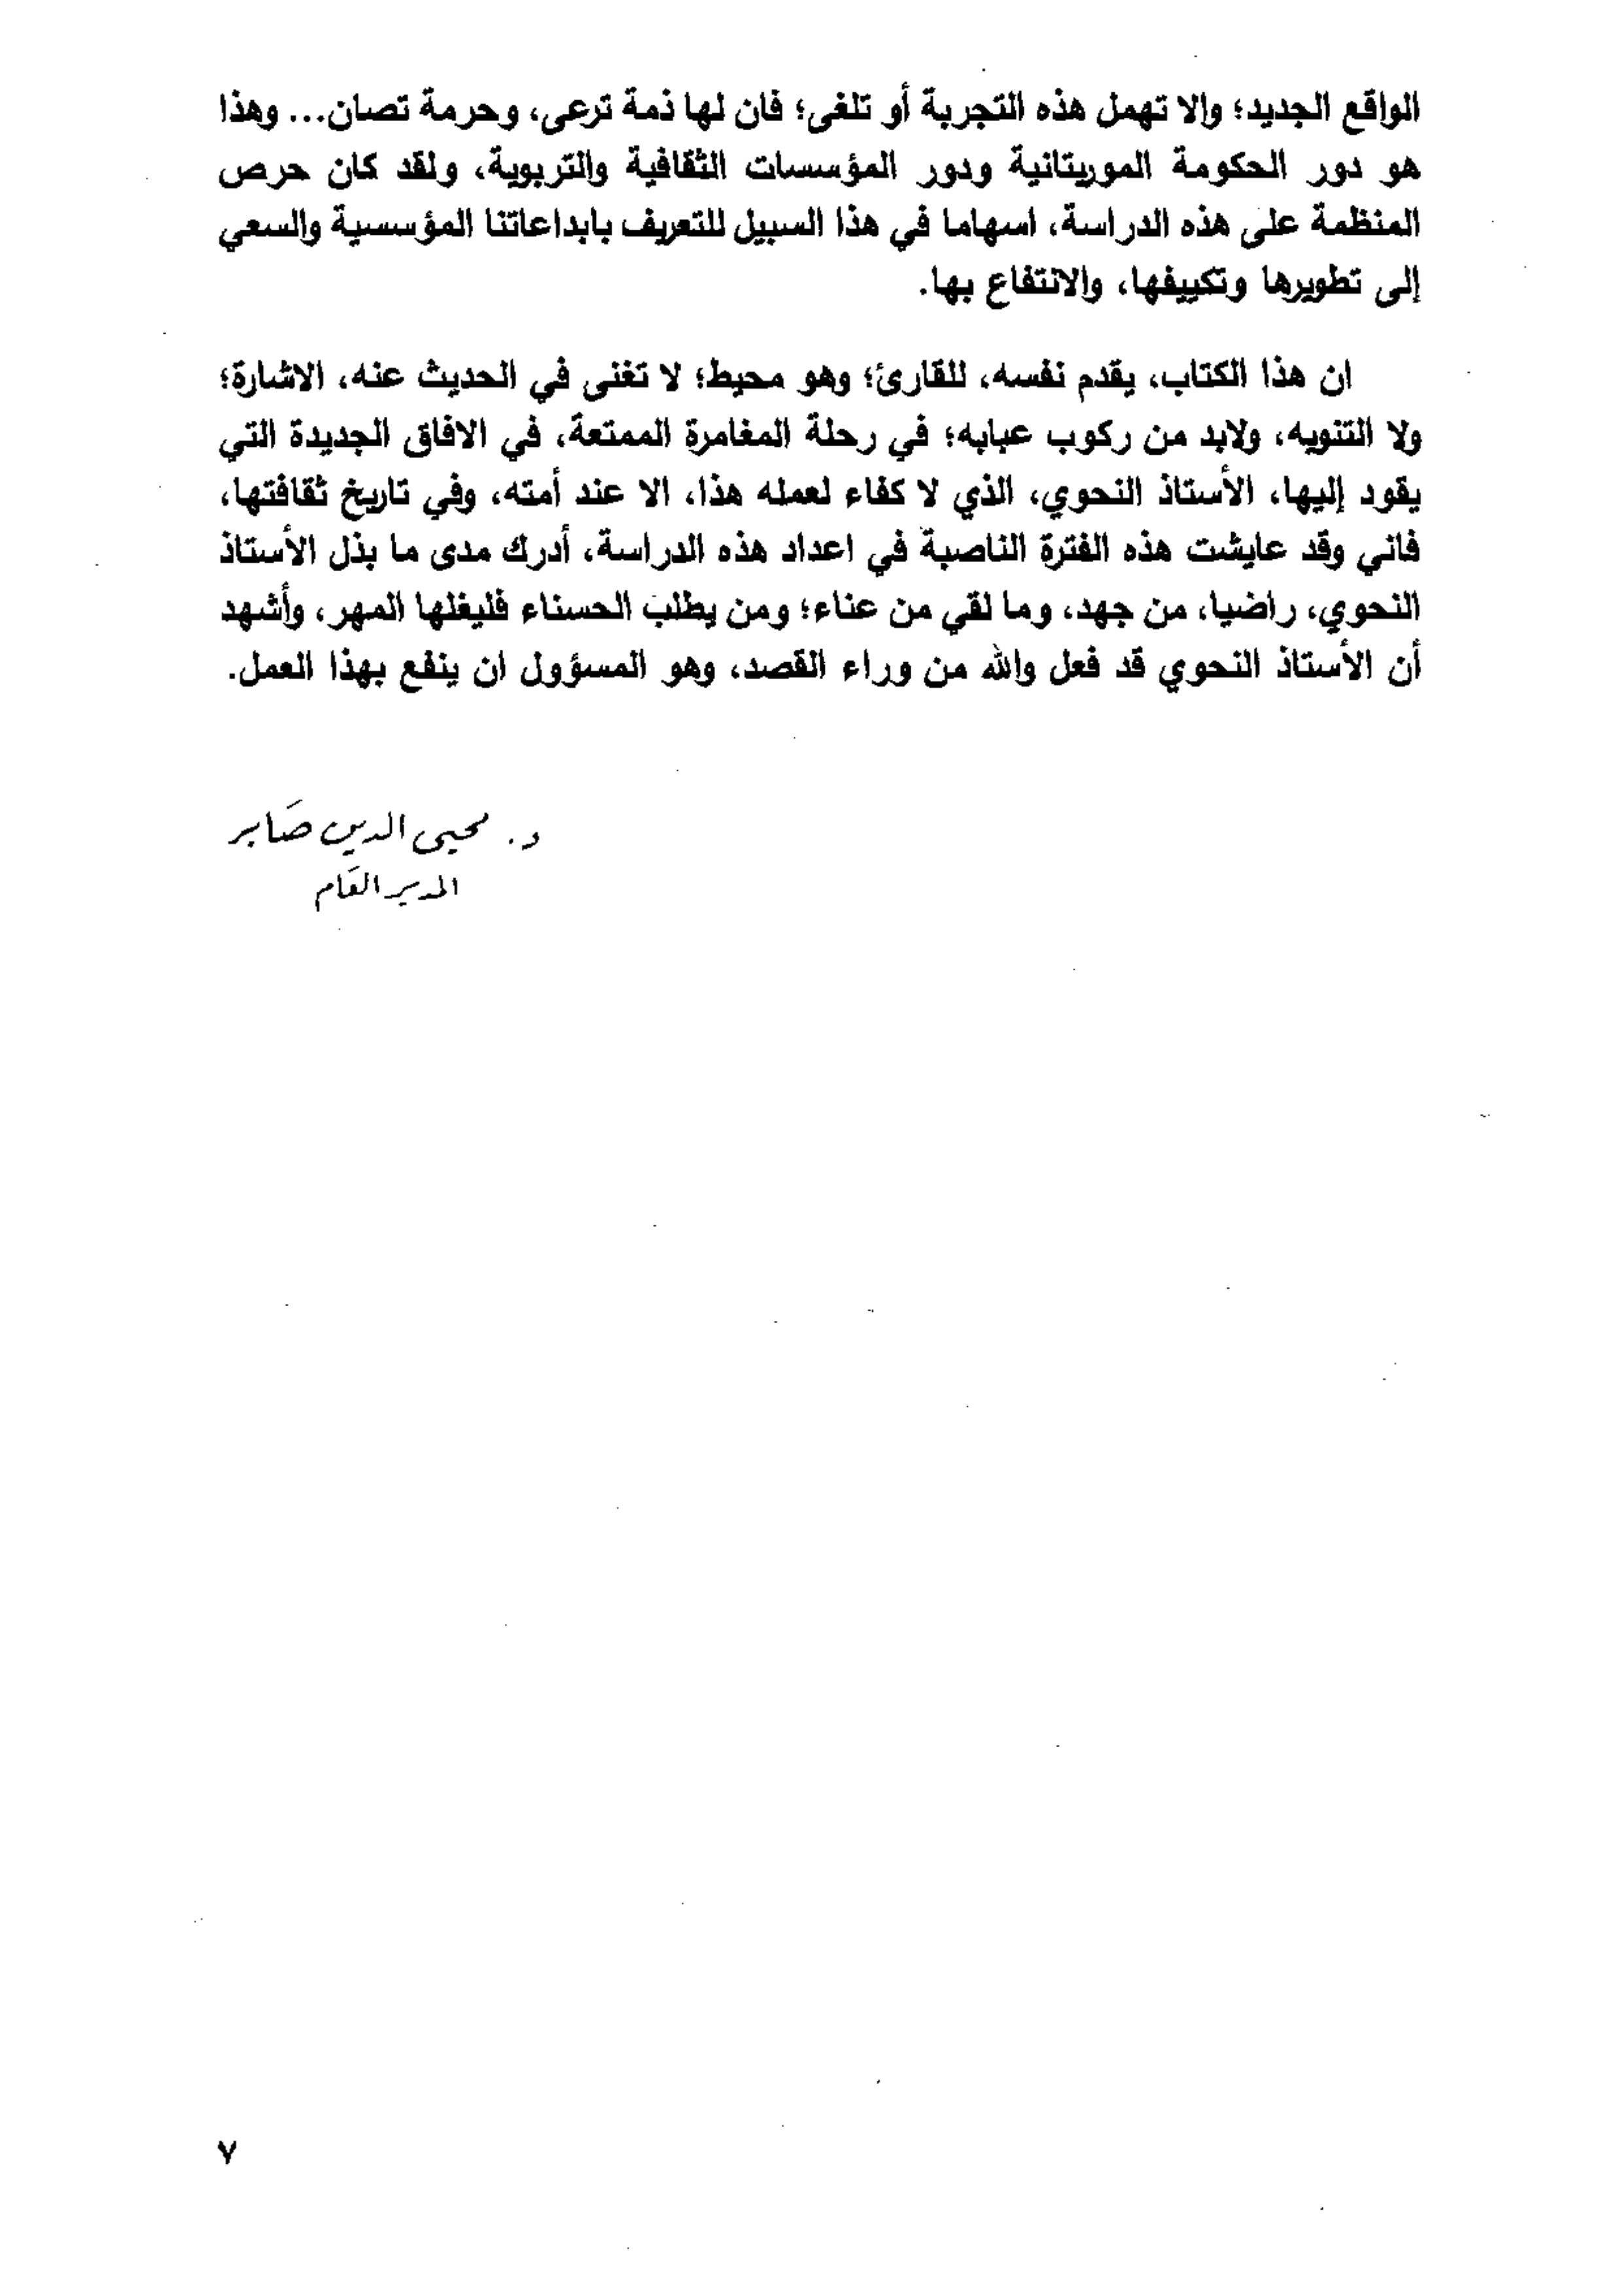 الواقع الجديد؛ وإلا تهمل هذه التجربة أو تلغى؛ فان لها ذمة ترعى، وحرمة تصان... وهذا
هو دور الحكومة الموريتانية ودور المؤسسات الثقافية والتربوية، ولقد كان حرص
المنظمة على هذه الدراسة، اسهاما في هذا السبيل للتعريف بابداعاتنا المؤسسية والسعي
إلى تطويرها وتكييفها، والانتفاع بها.
ان هذا الكتاب، يقدم نفسه، للقارئ؛ وهو محيط؛ لا تغنى في الحديث عنه، الاشارة؛
ولا التنويه، ولابد من ركوب عبابه؛ في رحلة المغامرة الممتعة، في الافاق الجديدة التي
يقود إليها، الأستاذ النحوي، الذي لا كفاء لعمله هذا، الا عند أمته، وفي تاريخ ثقافتها،
فاني وقد عايشت هذه الفترة الناصبة في اعداد هذه الدراسة، أدرك مدى ما بذل الأستاذ
النحوي، راضيا، من جهد، وما لقي من عناء؛ ومن يطلب الحسناء فليغلها المهر، وأشهد
أن الأستاذ النحوي قد فعل والله من وراء القصد، وهو المسؤول ان ينفع بهذا العمل.
د. محيى الدين صَابر
المدير العَام
٧